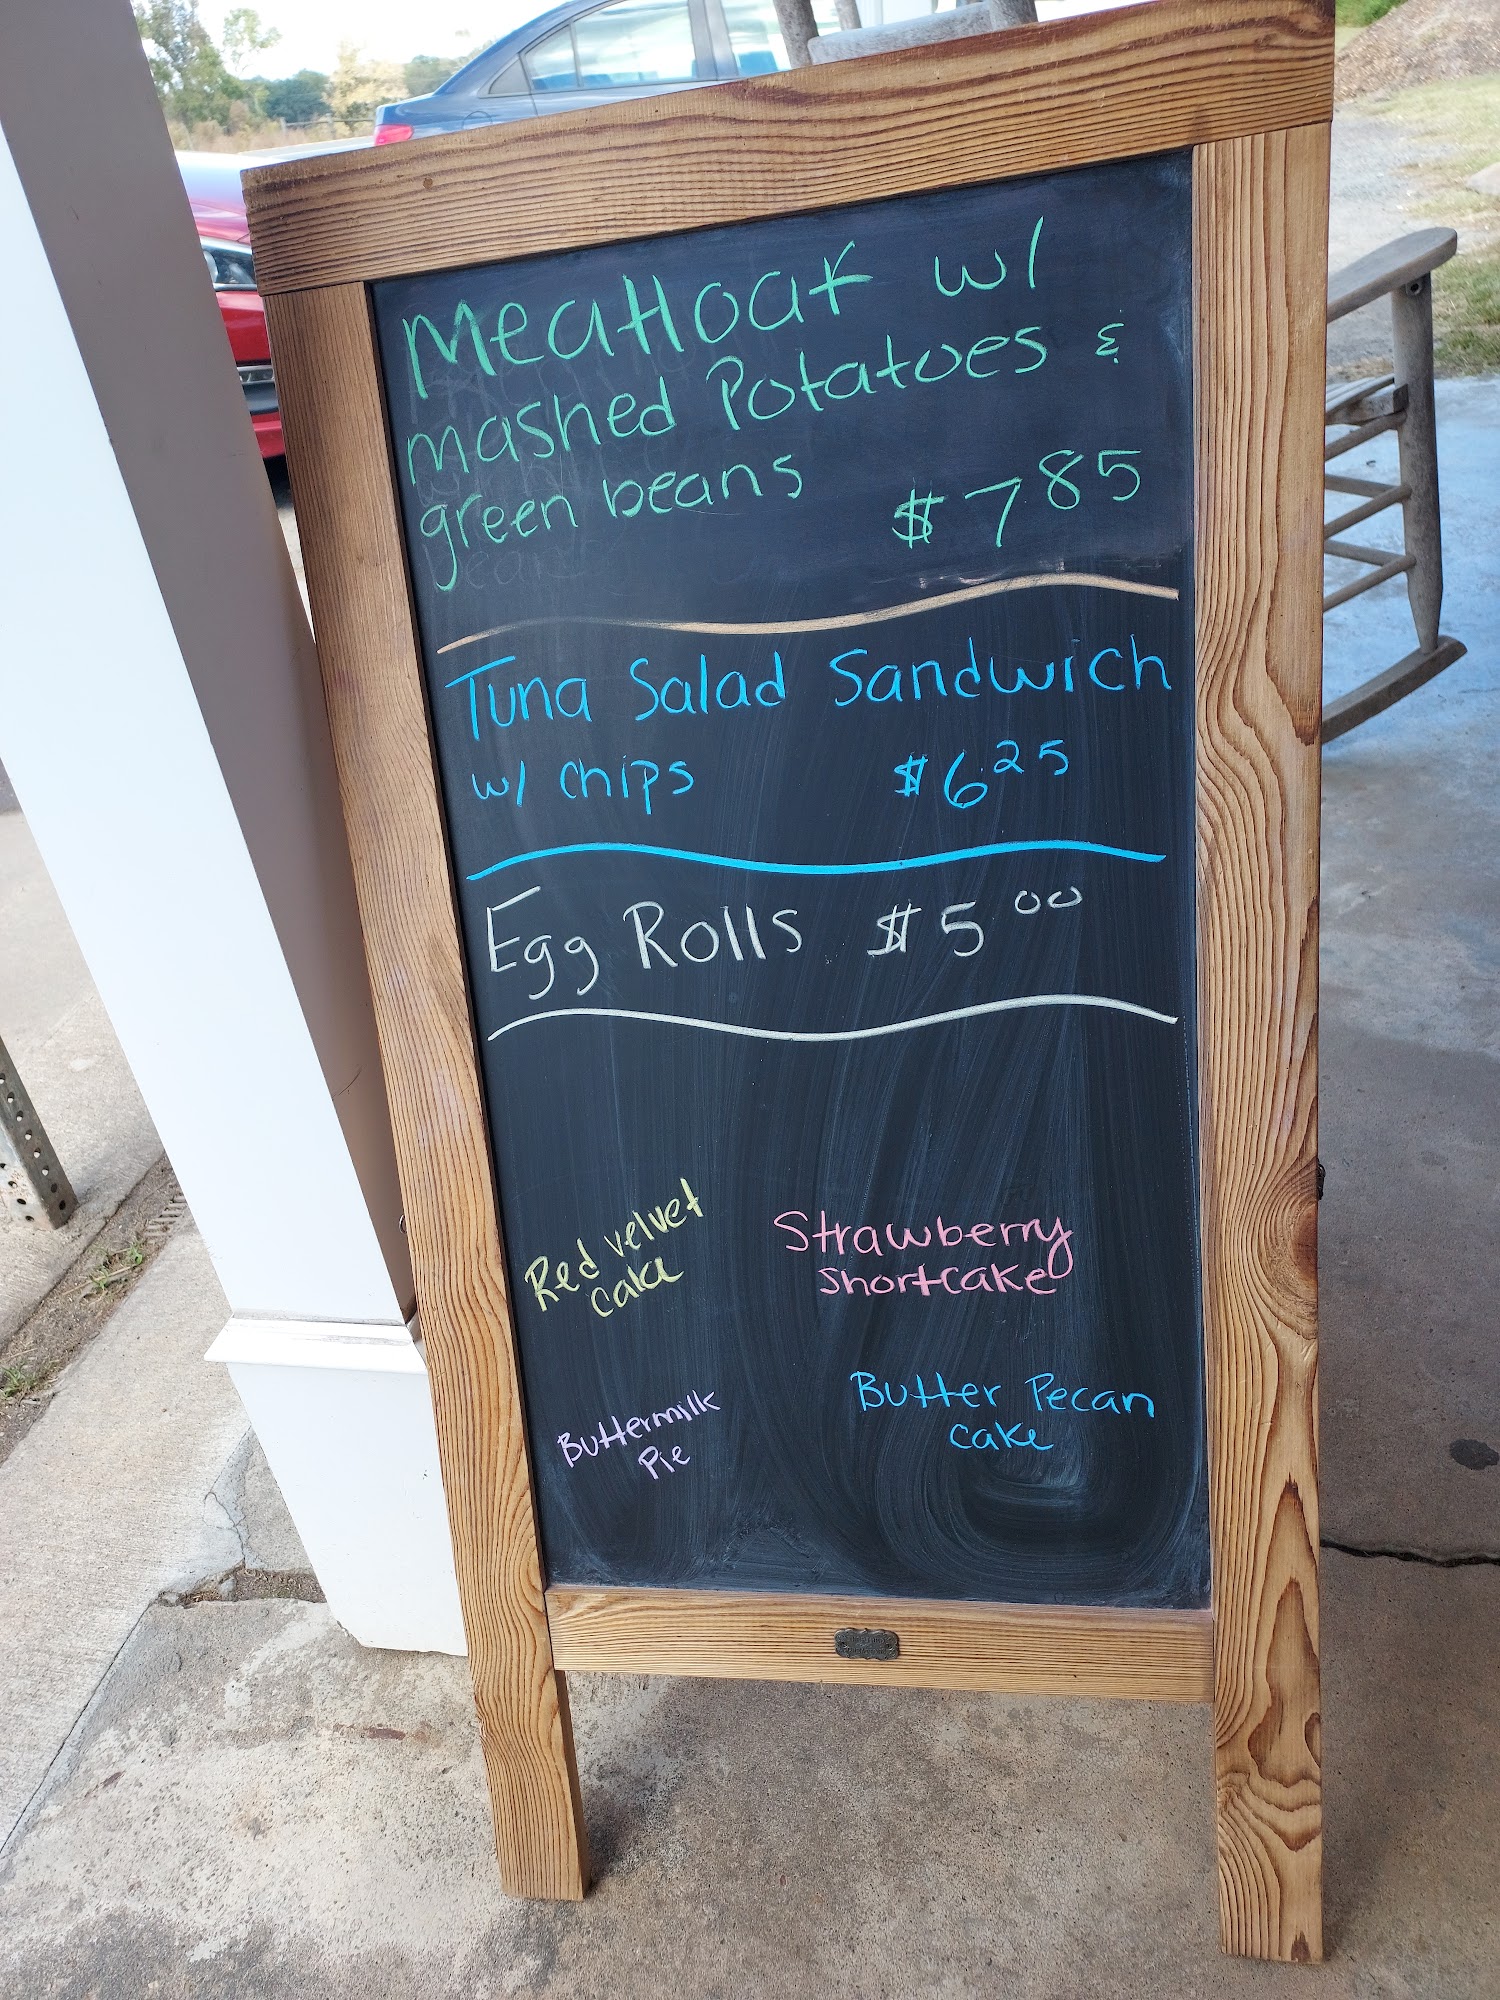 Meatloaf w/
mashed Potatoes &
green beans $7 85
Tuna Salad Sandwich
w/ chips $6 25
Egg Rolls $5 00
Red velvet
Cake
Strawberry
Shortcake
Buttermilk
Pie
Butter Pecan
Cake